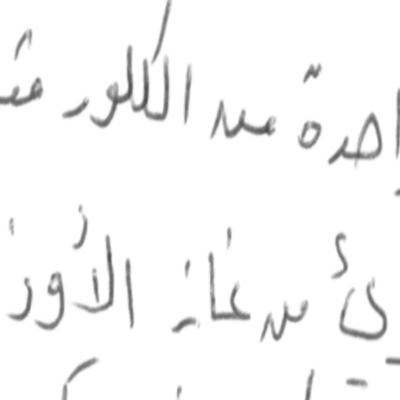 احدة من الكلور مت
يئ من غاز الأوز